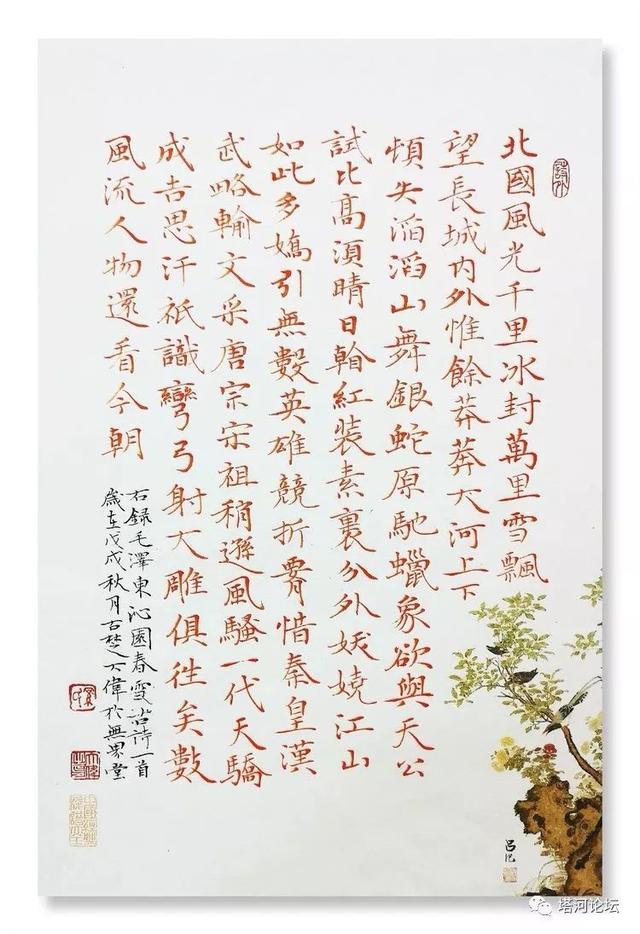 北國風光千里冰封萬里雪飄
望長城内外惟餘莽莽大河上下
頓失滔滔山舞銀蛇原馳蠟象欲與天公
試比髙須晴日看紅裝素裹分外妖嬈江山
如此多嬌引無數英雄競折腰惜秦皇漢
武略輸文采唐宗宋祖稍遜風騷一代天驕
成吉思汗祇識彎弓射大雕俱往矣數
風流人物還看今朝
右錄毛澤東沁園春雪詩一首
歲在戊戌秋月古楚大偉於無界堂
呂紀
塔河论坛